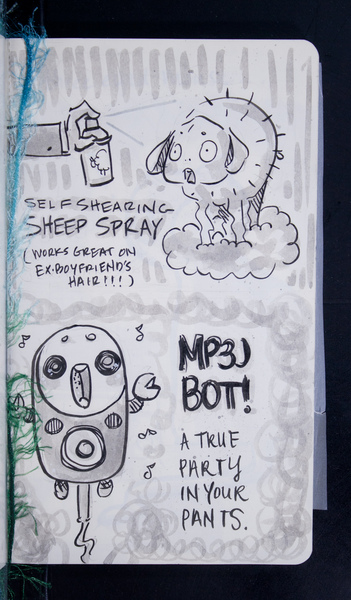 SELF SHEARING
SHEEP SPRAY
(WORKS GREAT ON
EX-BOYFRIEND'S
HAIR!!!)
MP3J
BOT!
A TRUE
PARTY
IN YOUR
PANTS.